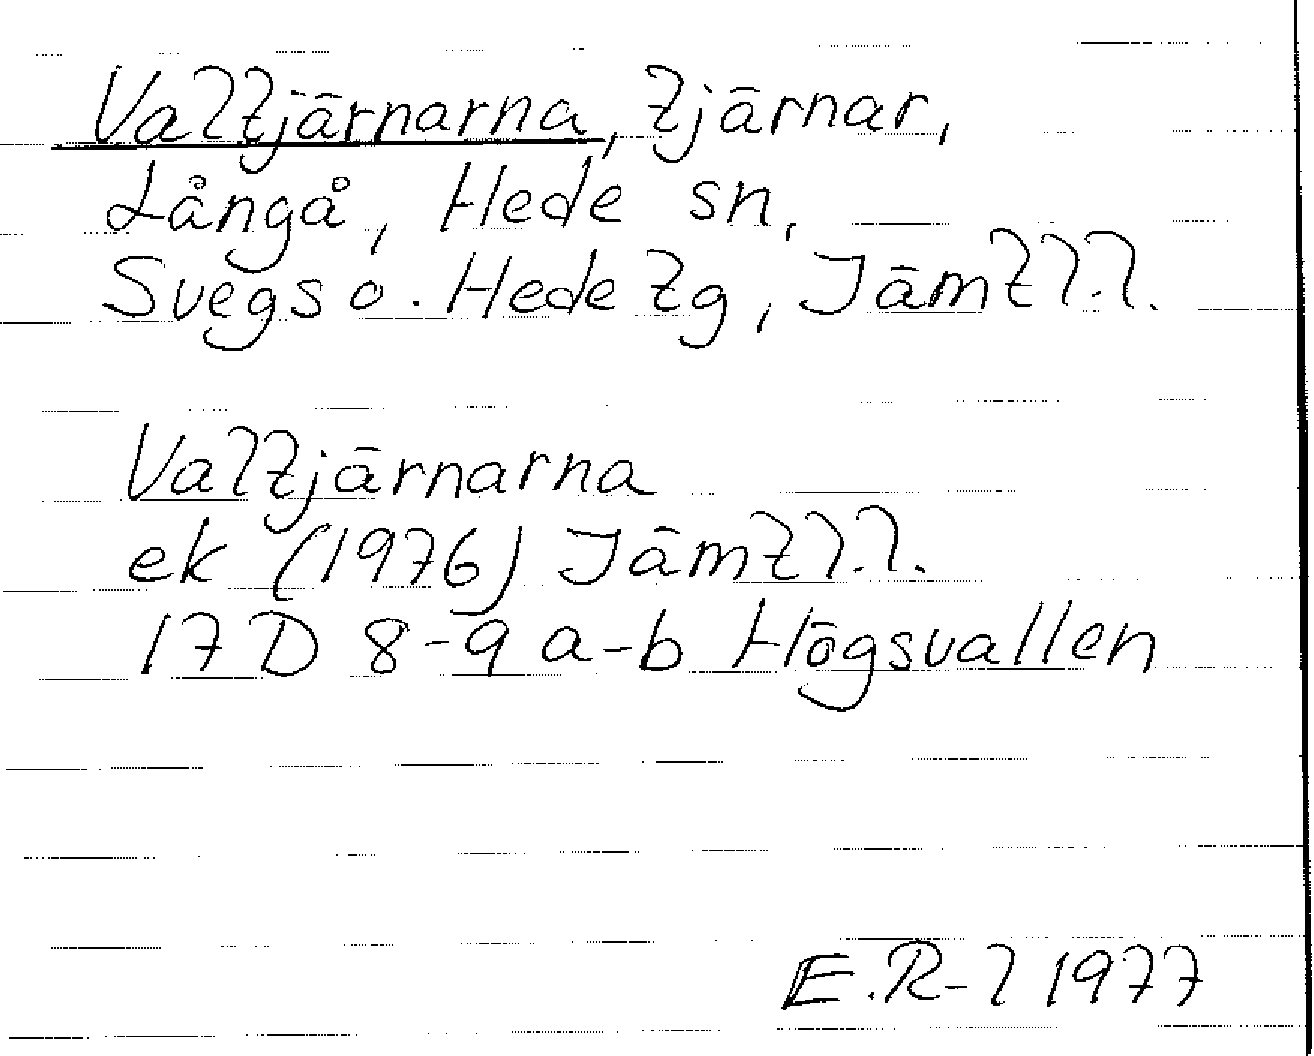 Valtjärnarna, tjärnar,
Långå, Hede sn,
Svegs o. Hede tg, Jämtl.l.
Valtjärnarna
ek (1976) Jämtl.l.
17D 8-9 a-b Högsvallen
E.R-l 1977